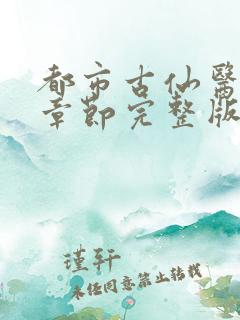 都市古仙醫
章節完整版
瑾軒
未经同意禁止转载